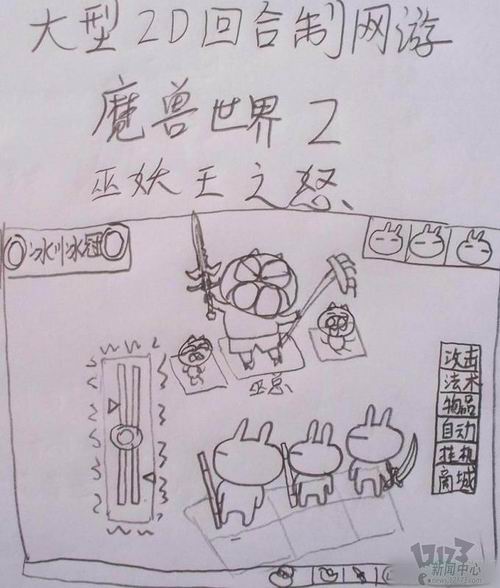 大型2D回合制网游
魔兽世界2
巫妖王之怒
冰川冰冠
攻击
法术
物品
自动
挂机
商城
巫总
17173
新闻中心
news.17173.com